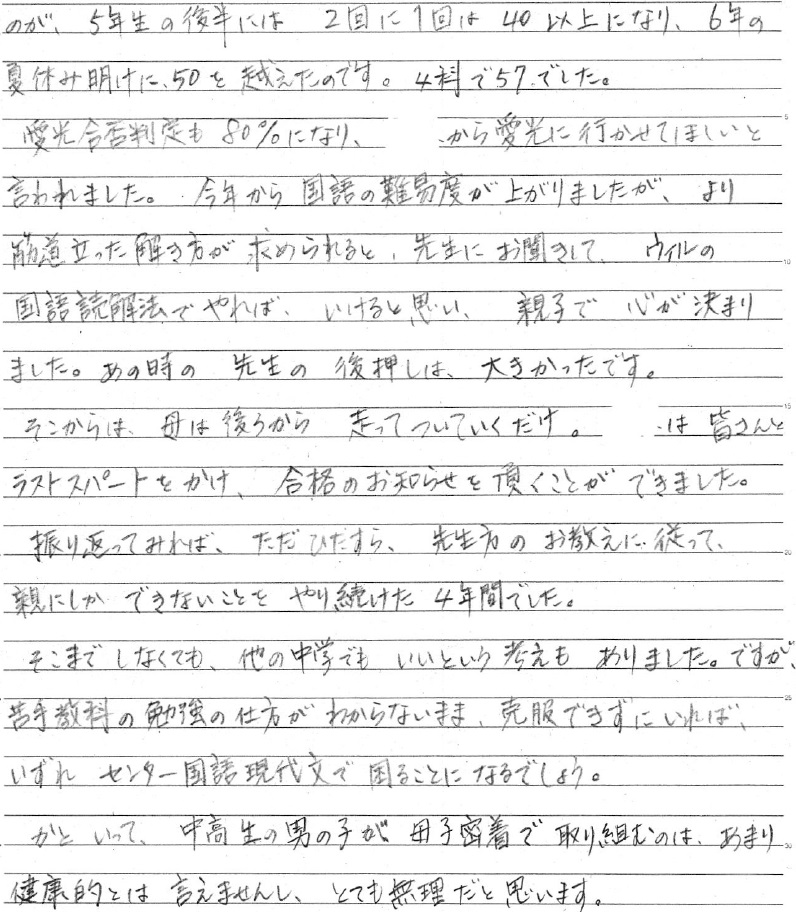 のが、5年生の後半には 2回に1回は 40以上になり、6年の
夏休み明けに、50を越えたのです。4科で57.でした。
愛光合否判定も 80%になり、 から愛光に行かせてほしいと
言われました。 今年から 国語の難易度が上がりましたが、より
筋道立った解き方が求められると、先生にお聞きして、 ウィルの
国語読解法でやれば、 いけると思い、 親子で 心が決まり
ました。あの時の 先生の 後押しは、大きかったです。
そこからは、母は後ろから 走ってついていくだけ。 は皆さんと
ラストスパートをかけ、合格のお知らせを頂くことができました。
振り返ってみれば、ただひたすら、先生方のお教えに従って、
親にしか できないことを やり続けた 4年間でした。
そこまでしなくても、他の中学でも いいという考えも ありました。ですが、
苦手教科の勉強の仕方が わからないまま、克服できずにいれば、
いずれ センター国語現代文で困ることになるでしょう。
かといって、中高生の男の子が 母子密着で取り組むのは、あまり
健康的とは 言えませんし、とても無理だと思います。
5
10
15
20
25
30